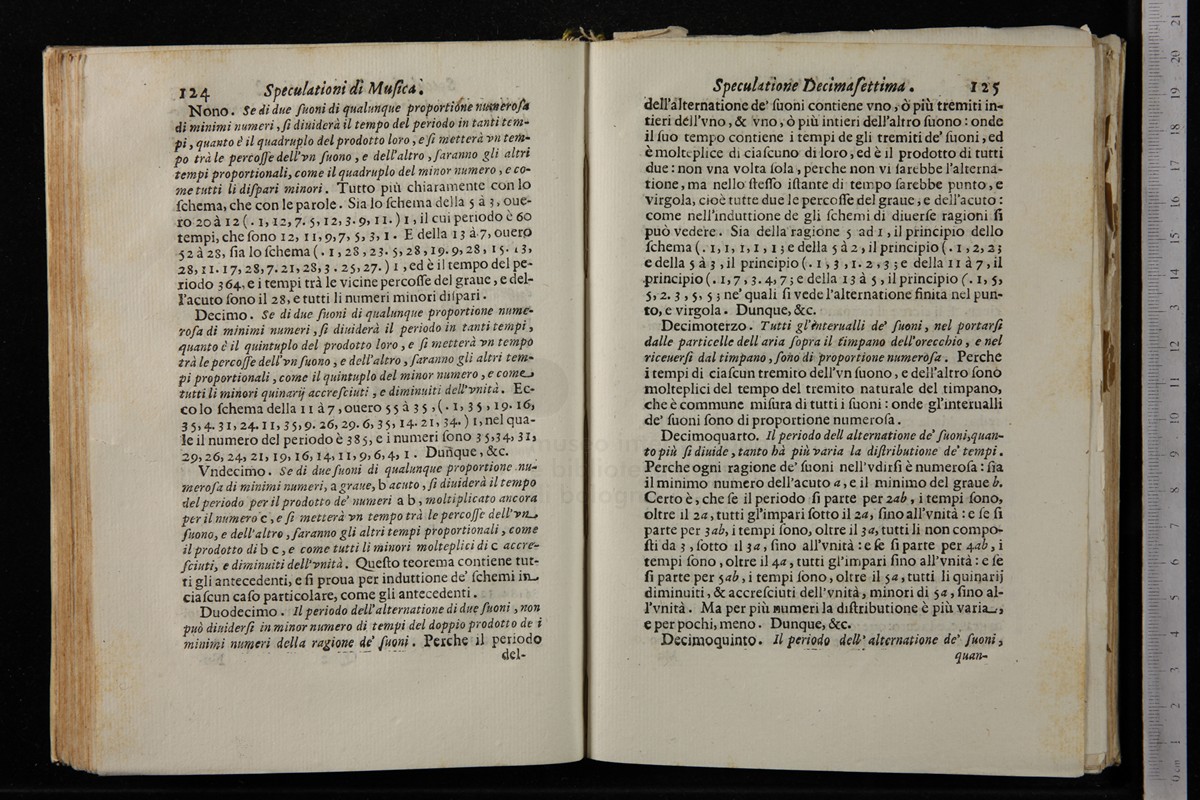 124 Speculationi di Muſica.
Nono. Se di due ſuoni di qualunque proportione numeroſa
di minimi numeri, ſi diuiderà il tempo del periodo in tanti tem-
pi, quanto è il quadruplo del prodotto loro, e ſi metterà vn tem-
po trà le percoſſe dell'vn ſuono, e dell'altro, ſaranno gli altri
tempi proportionali, come il quadruplo del minor numero, e co-
me tutti li diſpari minori. Tutto più chiaramente con lo
ſchema, che con le parole. Sia lo ſchema della 5 à 3, oue-
ro 20 à 12 (. 1, 12, 7. 5, 12, 3. 9, 11. ) 1, il cui periodo è 60
tempi, che ſono 12, 11, 9, 7, 5, 3, 1. E della 13 à 7, ouero
52 à 28, ſia lo ſchema (. 1, 28, 23. 5, 28, 19. 9, 28, 15. 13,
28, 11. 17, 28, 7. 21, 28, 3. 25, 27. ) 1, ed è il tempo del pe-
riodo 364, e i tempi trà le vicine percoſſe del graue, e del-
l'acuto ſono il 28, e tutti li numeri minori diſpari.
Decimo. Se di due ſuoni di qualunque proportione nume-
roſa di minimi numeri, ſi diuiderà il periodo in tanti tempi,
quanto è il quintuplo del prodotto loro, e ſi metterà vn tempo
trà le percoſſe dell'vn ſuono, e dell'altro, ſaranno gli altri tem-
pi proportionali, come il quintuplo del minor numero, e come
tutti li minori quinarij accreſciuti, e diminuiti dell'vnità. Ec-
co lo ſchema della 11 à 7, ouero 55 à 35, (. 1, 35, 19. 16,
35, 4. 31, 24. 11, 35, 9. 26, 29. 6, 35, 14. 21, 34. ) 1, nel qua-
le il numero del periodo è 385, e i numeri ſono 35, 34, 31,
29, 26, 24, 21, 19, 16, 14, 11, 9, 6, 4, 1. Dunque, &c.
Vndecimo. Se di due ſuoni di qualunque proportione nu-
meroſa di minimi numeri, a graue, b acuto, ſi diuiderà il tempo
del periodo per il prodotto de' numeri a b, moltiplicato ancora
per il numero c, e ſi metterà vn tempo trà le percoſſe dell'vn
ſuono, e dell'altro, ſaranno gli altri tempi proportionali, come
il prodotto di b c, e come tutti li minori molteplici di c accre-
ſciuti, e diminuiti dell'vnità. Queſto teorema contiene tut-
ti gli antecedenti, e ſi proua per induttione de' ſchemi in
ciaſcun caſo particolare, come gli antecedenti.
Duodecimo. Il periodo dell'alternatione di due ſuoni, non
può diuiderſi in minor numero di tempi del doppio prodotto de i
minimi numeri della ragione de' ſuoni. Perche il periodo
del-
Speculatione Decimaſettima. 125
dell'alternatione de' ſuoni contiene vno, ò più tremiti in-
tieri dell'vno, & vno, ò più intieri dell'altro ſuono: onde
il ſuo tempo contiene i tempi de gli tremiti de' ſuoni, ed
è molteplice di ciaſcuno di loro, ed è il prodotto di tutti
due: non vna volta ſola, perche non vi ſarebbe l'alterna-
tione, ma nello ſteſſo iſtante di tempo ſarebbe punto, e
virgola, cioè tutte due le percoſſe del graue, e dell'acuto:
come nell'induttione de gli ſchemi di diuerſe ragioni ſi
può vedere. Sia della ragione 5 ad 1, il principio dello
ſchema (. 1, 1, 1, 1, 1; e della 5 à 2, il principio (. 1, 2, 2;
e della 5 à 3, il principio (. 1, 3, 1. 2, 3; e della 11 à 7, il
principio (. 1, 7, 3. 4, 7; e della 13 à 5, il principio (. 1, 5,
5, 2. 3, 5, 5; ne' quali ſi vede l'alternatione finita nel pun-
to, e virgola. Dunque, &c.
Decimoterzo. Tutti gl'interualli de' ſuoni, nel portarſi
dalle particelle dell aria ſopra il timpano dell'orecchio, e nel
riceuerſi dal timpano, ſono di proportione numeroſa. Perche
i tempi di ciaſcun tremito dell'vn ſuono, e dell'altro ſono
molteplici del tempo del tremito naturale del timpano,
che è commune miſura di tutti i ſuoni: onde gl'interualli
de' ſuoni ſono di proportione numeroſa.
Decimoquarto. Il periodo dell alternatione de' ſuoni, quan-
to più ſi diuide, tanto hà più varia la diſtributione de' tempi.
Perche ogni ragione de' ſuoni nell'vdirſi è numeroſa: ſia
il minimo numero dell'acuto a, e il minimo del graue b.
Certo è, che ſe il periodo ſi parte per 2ab, i tempi ſono,
oltre il 2a, tutti gl'impari ſotto il 2a, fino all'vnità: e ſe ſi
parte per 3ab, i tempi ſono, oltre il 3a, tutti li non compo-
ſti da 3, ſotto il 3a, fino all'vnità: e ſe ſi parte per 4ab, i
tempi ſono, oltre il 4a, tutti gl'impari fino all'vnità: e ſe
ſi parte per 5ab, i tempi ſono, oltre il 5a, tutti li quinarij
diminuiti, & accreſciuti dell'vnità, minori di 5a, fino al-
l'vnità. Ma per più numeri la diſtributione è più varia,
e per pochi, meno. Dunque, &c.
Decimoquinto. Il periodo dell' alternatione de' ſuoni,
quan-